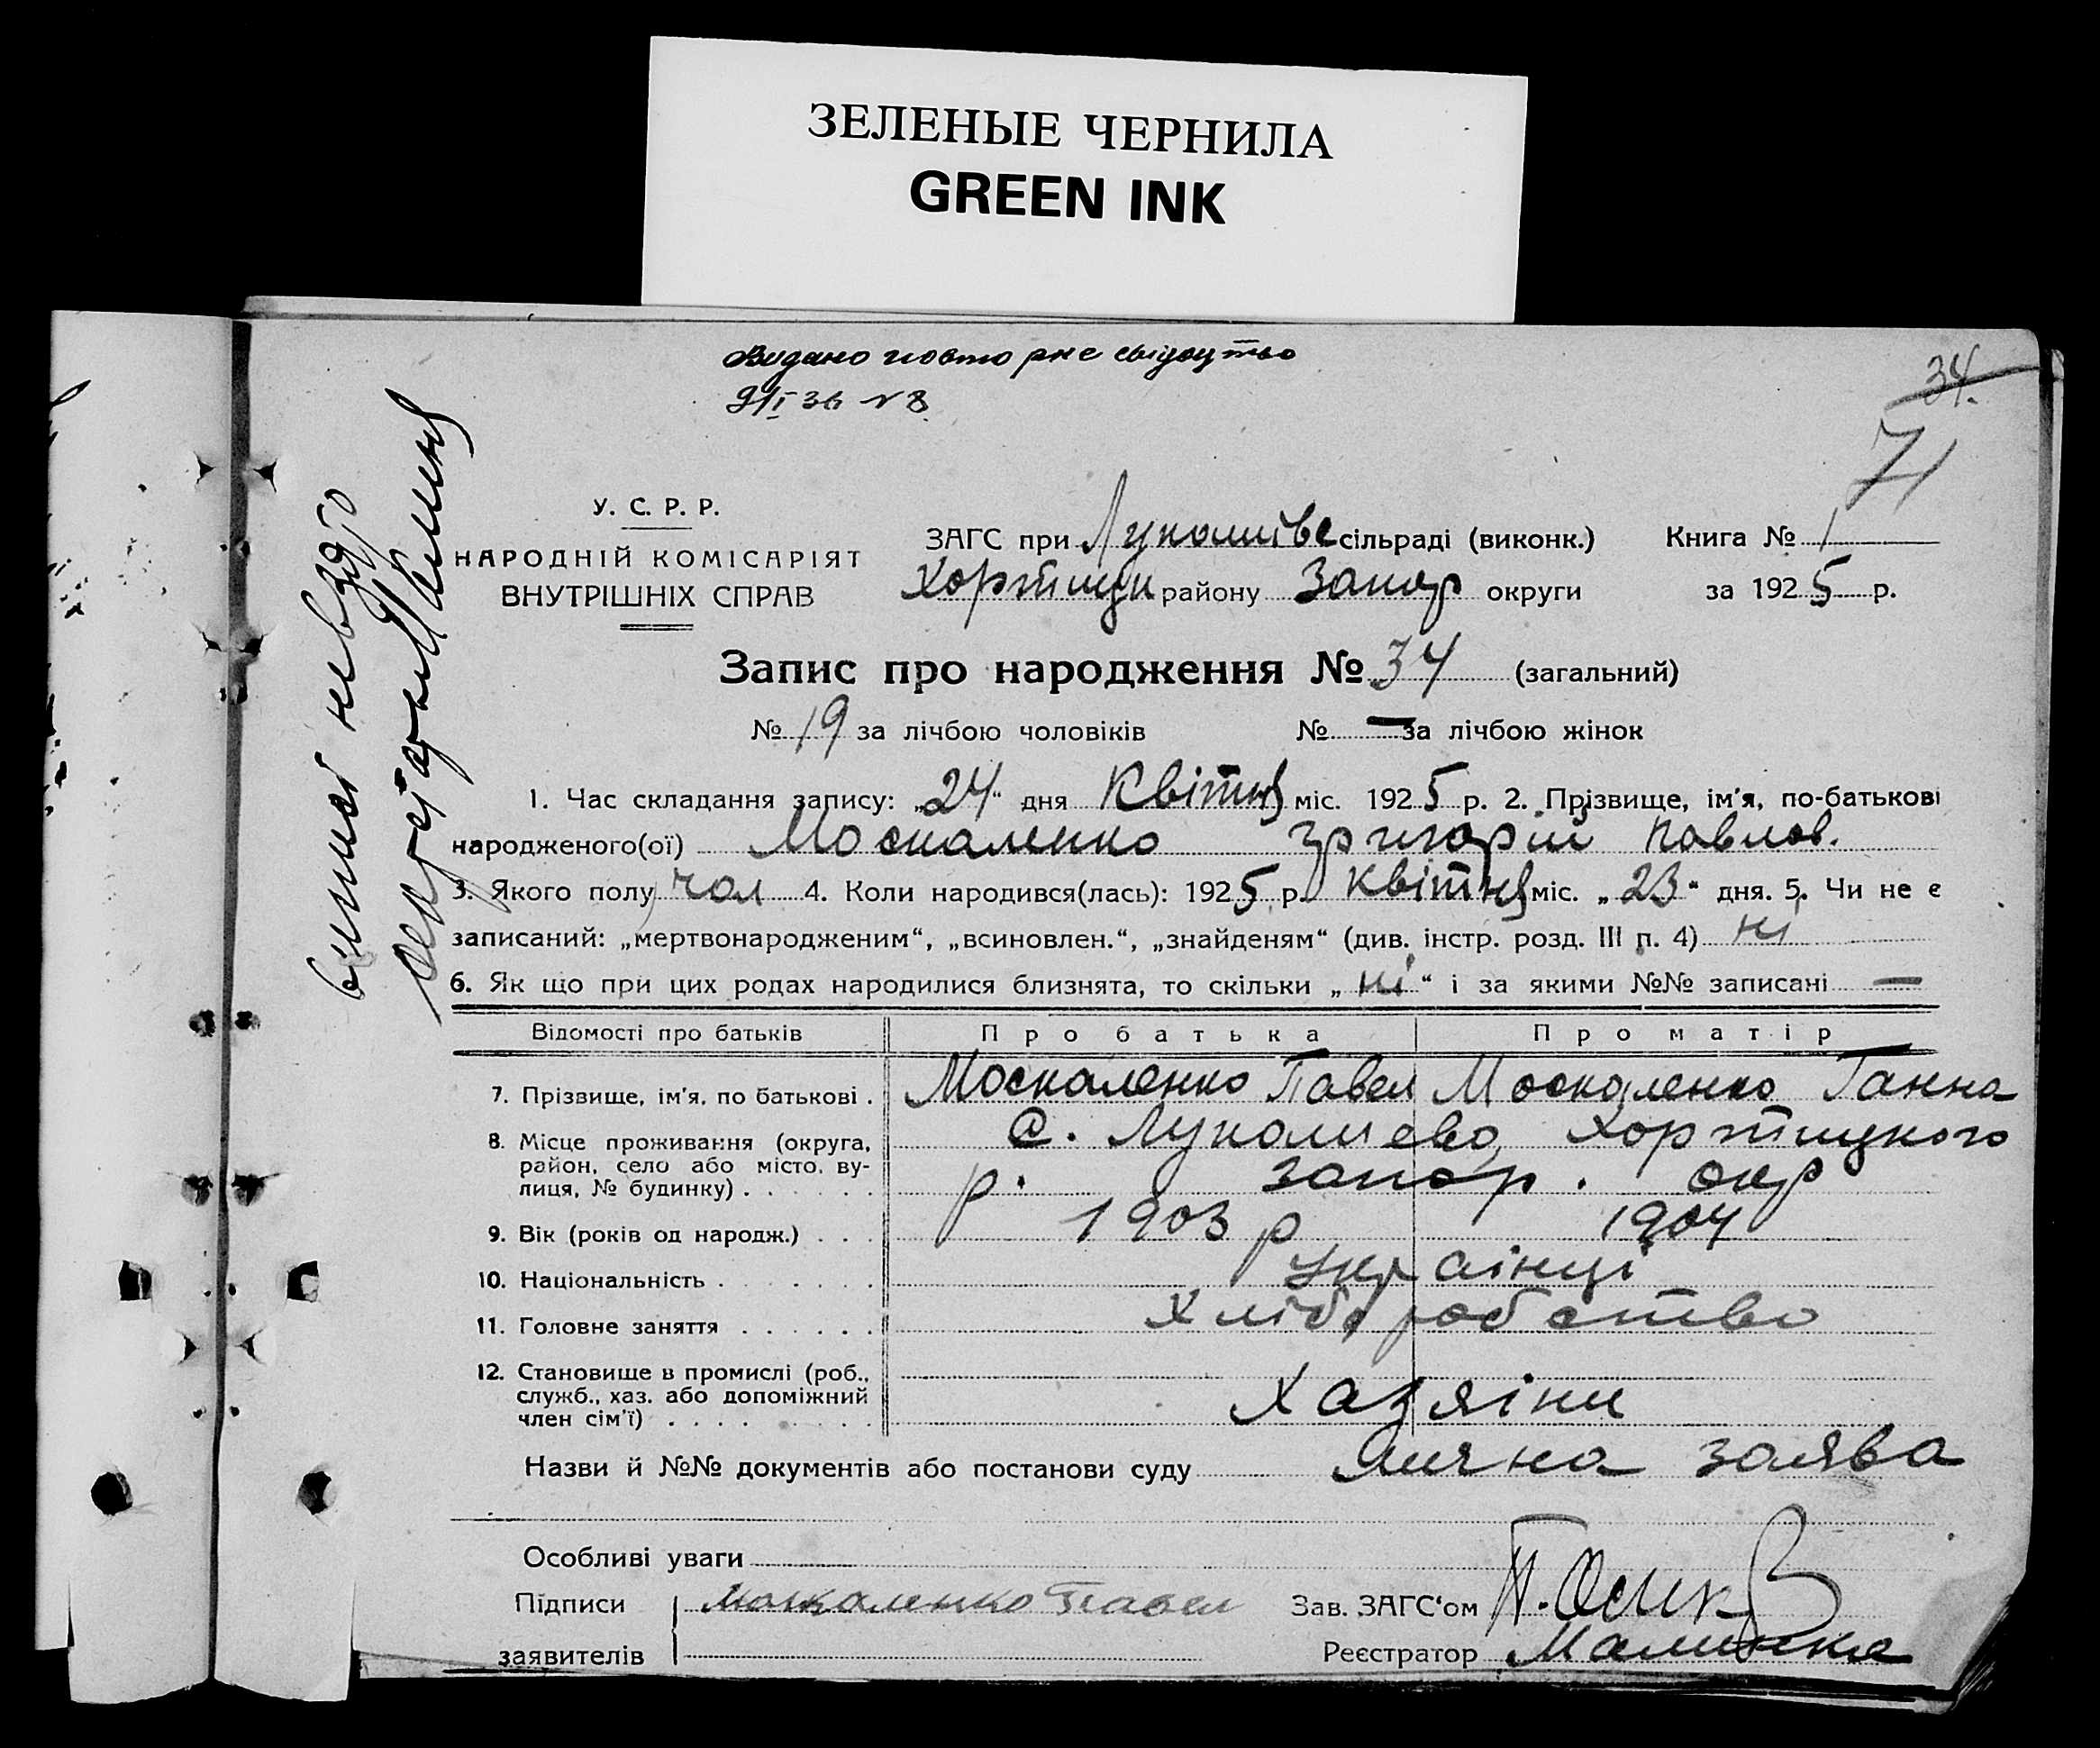 ЗЕЛЕНЫЕ ЧЕРНИЛА
GREEN INK
Видано повторне свідоцтво
36 N 8
34.
71
У. С. Р. Р.
НАРОДНІЙ КОМІСАРІЯТ
ВНУТРІШНІХ СПРАВ
ЗАГС при Лукашеве сільраді (виконк.) Книга № 1
Хортицьк району Запор округи за 1925 р.
Запис про народження № 34 (загальний)
№ 19 за лічбою чоловіків № — за лічбою жінок
1. Час складання запису: „24“ дня Квітня міс. 1925 р. 2. Прізвище, ім'я, по-батькові
народженого(ої) Москаленко Григорій Павлов.
3. Якого полу чол 4. Коли народився(лась): 1925 р. Квітня міс. „23“ дня. 5. Чи не є
записаний: „мертвонародженим“, „всиновлен.“, „знайденям“ (див. інстр. розд. III п. 4) ні
6. Як що при цих родах народилися близнята, то скільки „ні“ і за якими №№ записані —
Відомості про батьків Про батька Про матір
7. Прізвище, ім'я, по батькові . Москаленко Павел Москаленко Ганна
8. Місце проживання (округа, район, село або місто, вулиця, № будинку) . . . . . . С. Лукашево, Хортицкого
р. Запор. окр
9. Вік (років од народж.) . . . 1903 р 1904
10. Національність . . . . . . Українці
11. Головне заняття . . . . . . Хліборобство
12. Становище в промислі (роб., служб., хаз. або допоміжний член сім'ї) . . . . . . . . Хазяїни
Назви й №№ документів або постанови суду Лична заява
Особливі уваги
Підписи Москаленко Павел Зав. ЗАГС'ом
заявителів Реєстратор